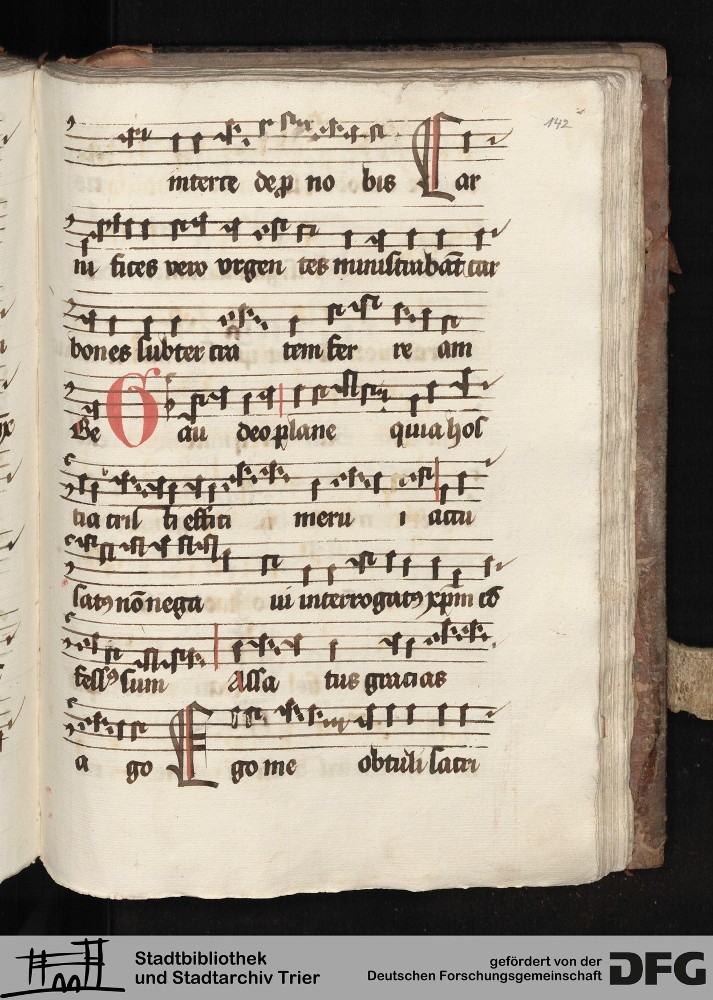 142
interce de p no bis Car
ni fices vero vrgen tes ministrabāt car
bones subter cra tem fer re am
Be Gau deo plane quia hos
tia cris ti effici meru i accu
satꝰ nō nega ui interrogatꝰ xp̄m cō
fessꝰ sum Assa tus gracias
a go Ego me obtuli sacri
Stadtbibliothek
und Stadtarchiv Trier
gefördert von der
Deutschen Forschungsgemeinschaft
DFG